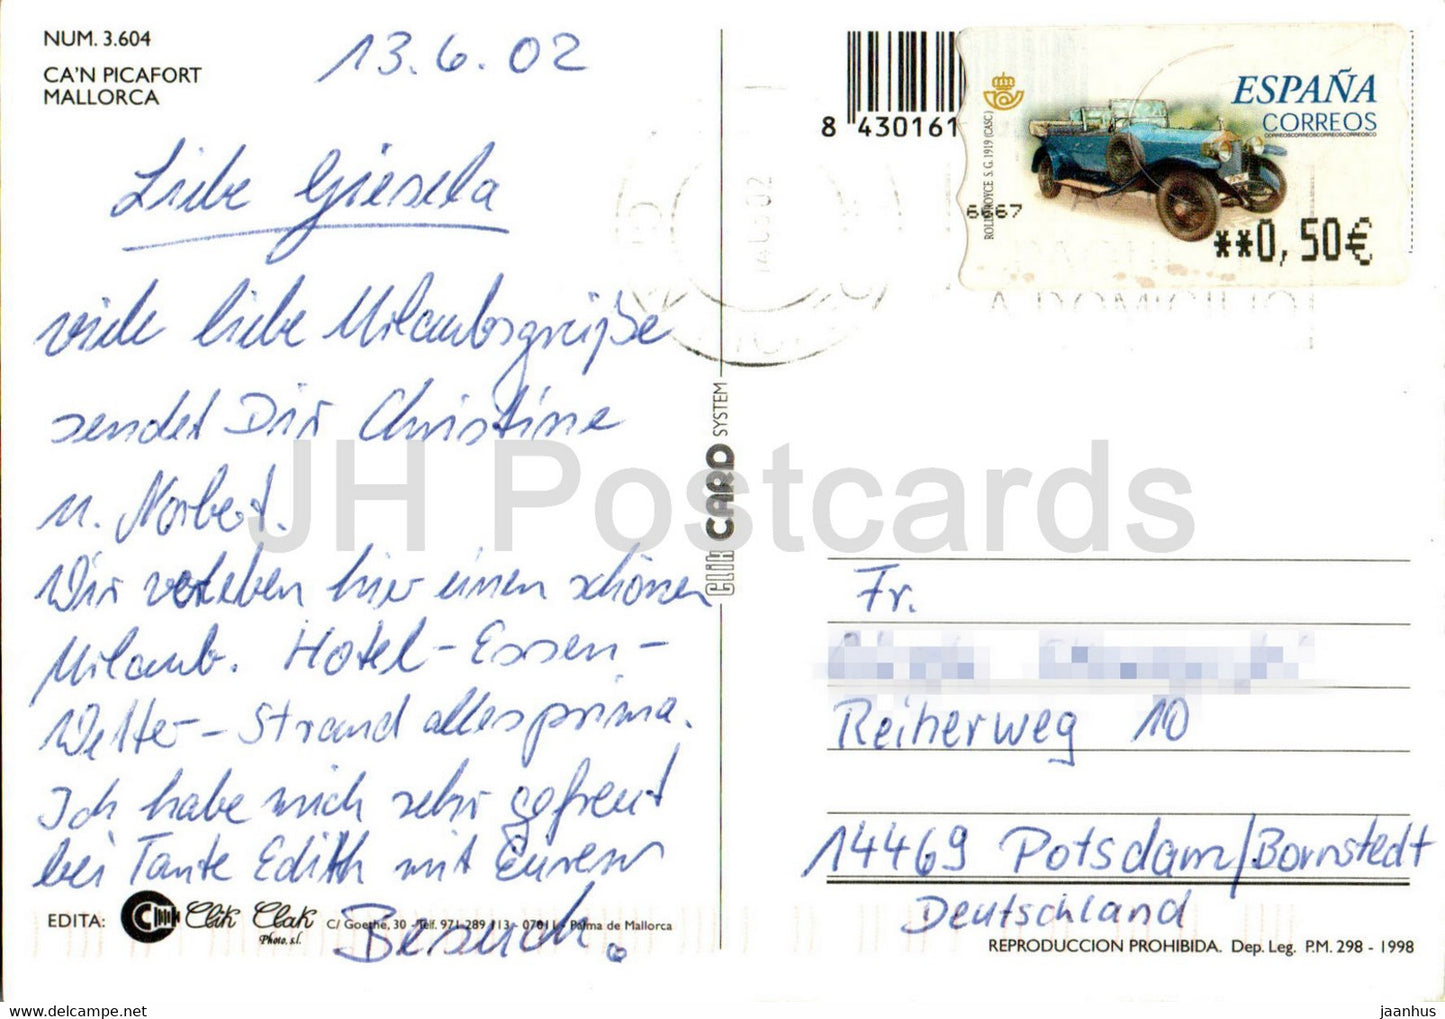 NUM. 3.604
CA'N PICAFORT
MALLORCA
13.6.02
Liebe Giesela
viele liebe Urlaubsgrüße
sendet Dir Christine
u. Norbert.
Wir verleben hier einen schönen
Urlaub. Hotel-Essen-
Wetter-Strand alles prima.
Ich habe mich sehr gefreut
bei Tante Edith mit Eurem
Besuch.
EDITA: Clik Clak Photo, s.l. C/ Goethe, 30 - Telf. 971 289 113 - 07011 - Palma de Mallorca
Clik CARD SYSTEM
8 430161
ESPAÑA
CORREOS
ROLLS ROYCE S. G. 1919 (CASC)
6667
**0,50€
A DOMICILIO
JH Postcards
Fr.
Reiherweg 10
14469 Potsdam/Bornstedt
Deutschland
REPRODUCCION PROHIBIDA. Dep. Leg. P.M. 298 - 1998
www.delcampe.net
jaanhus